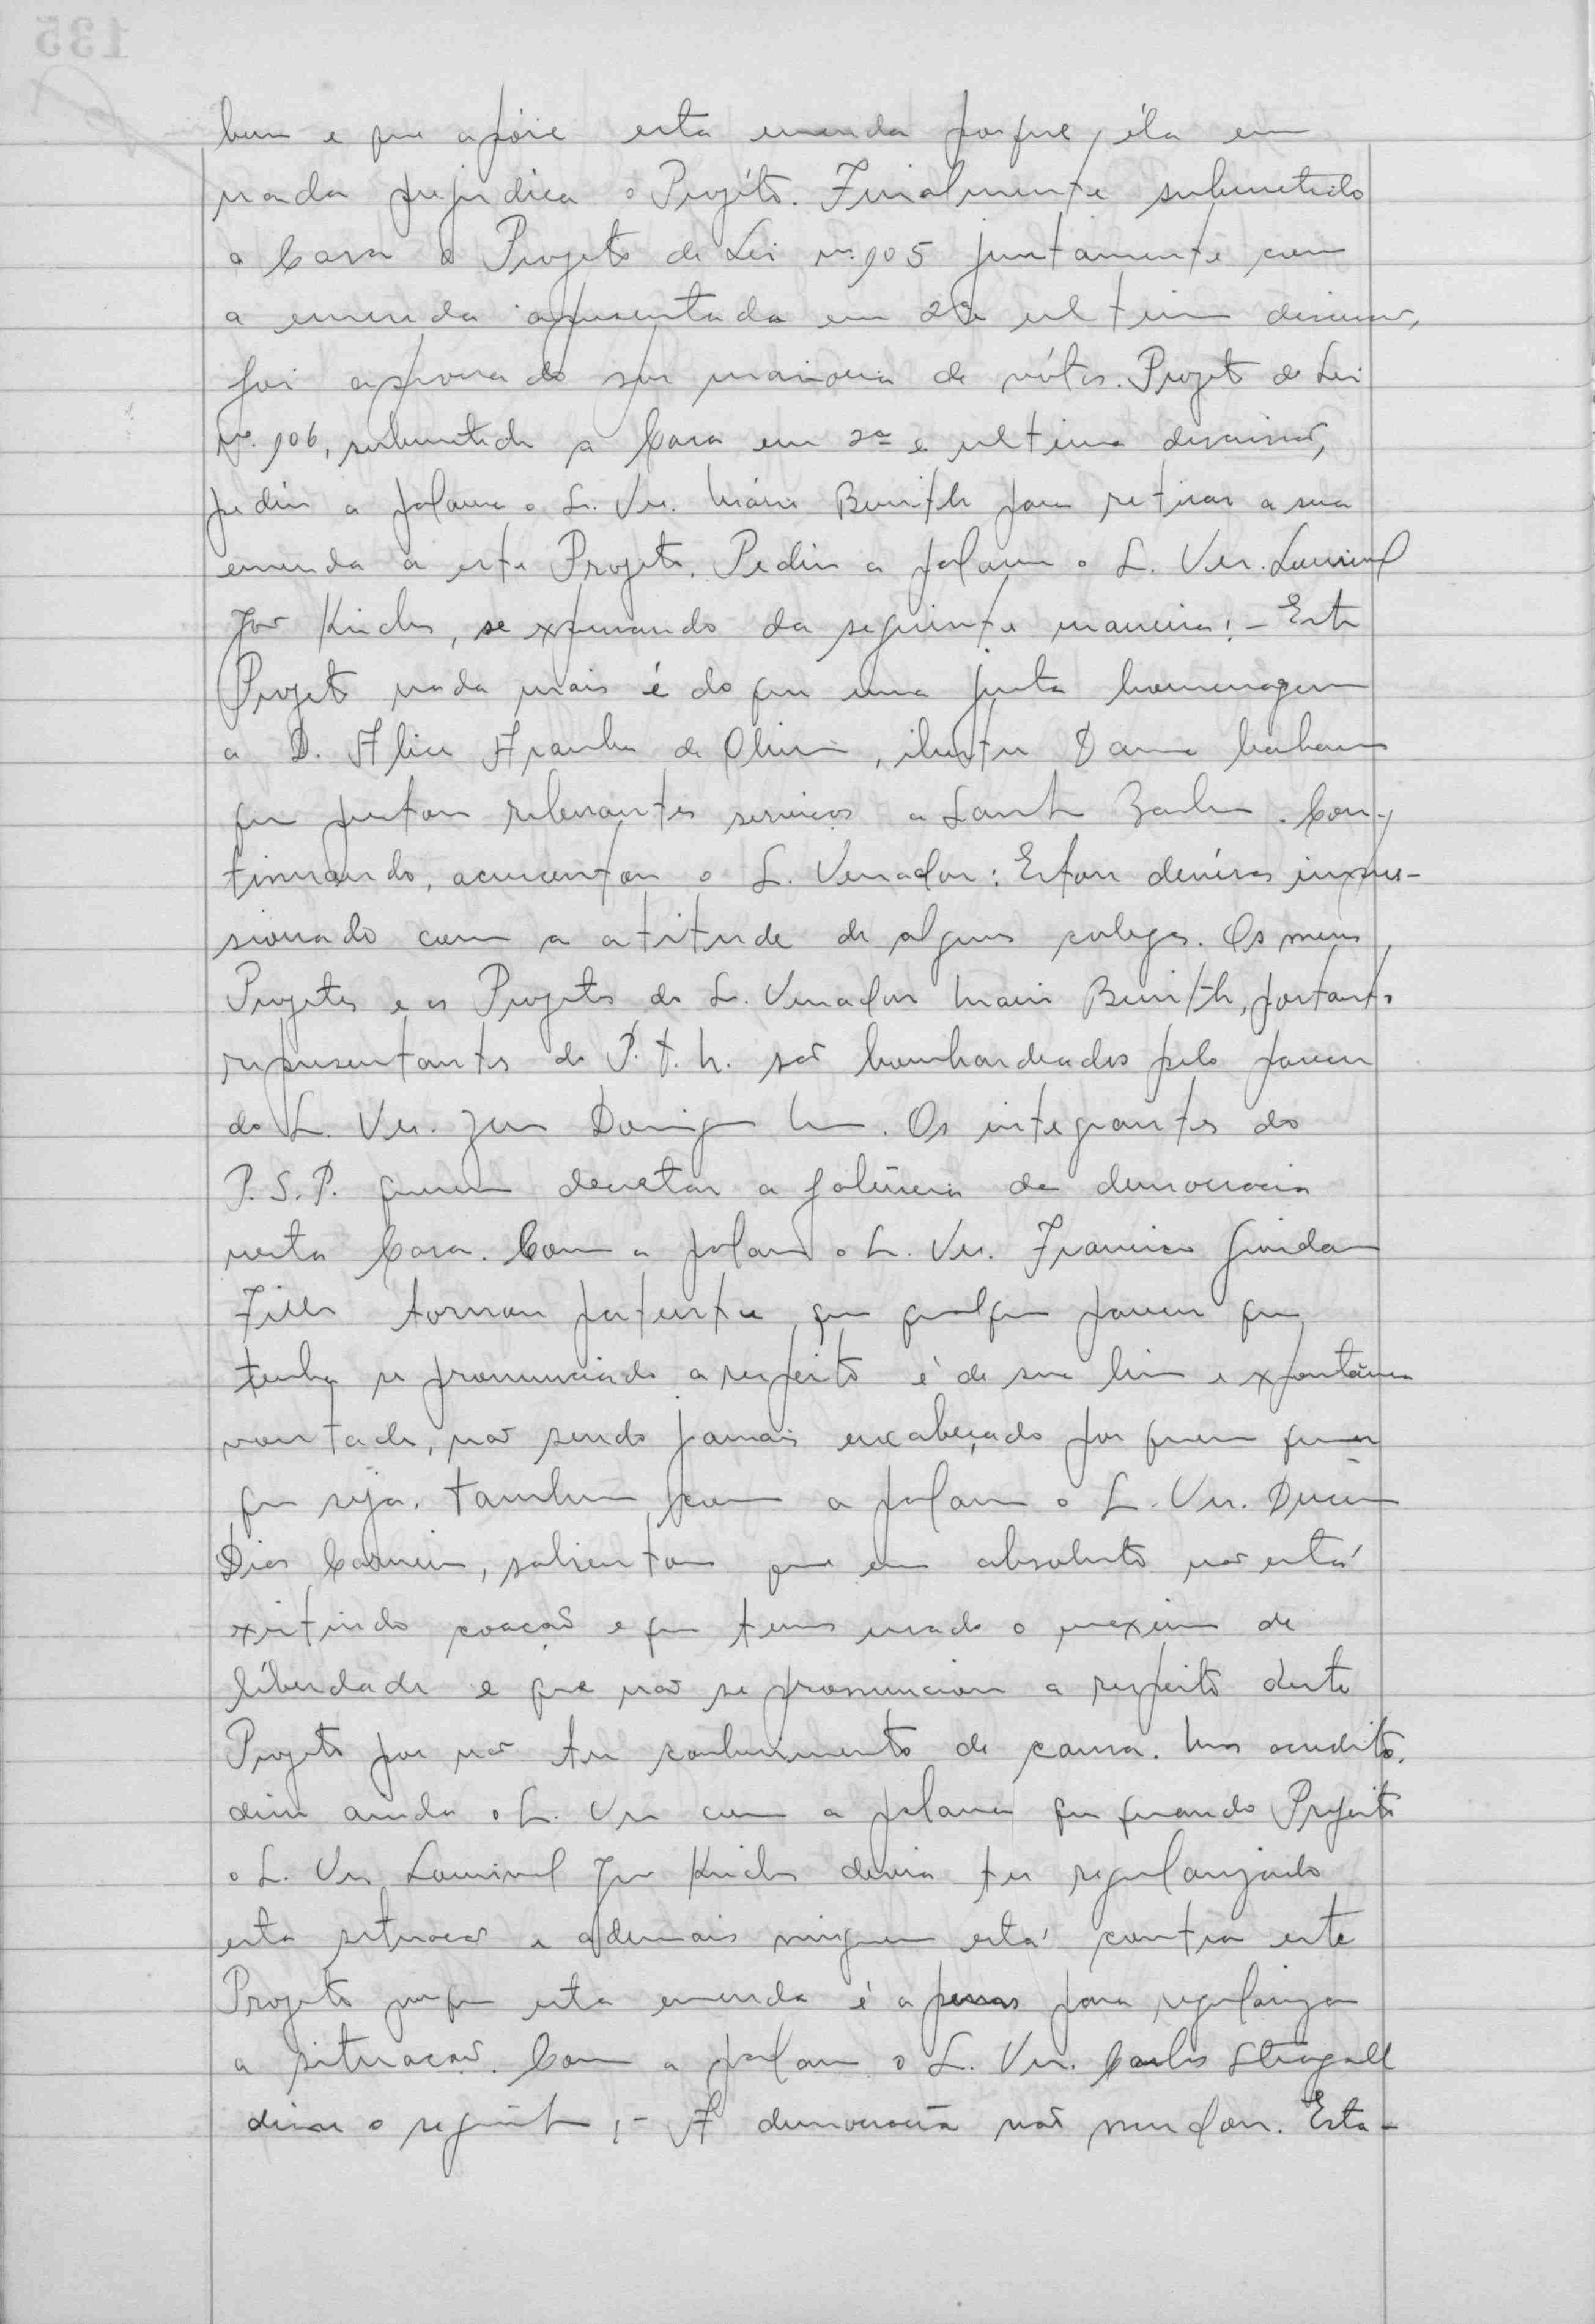 bem e que apóie esta emenda porque, éla em
nada prejudica o Projéto. Finalmente submetido
a Casa o Projeto de Lei nº. 105 juntamente com
a emenda apresentada em 2ª e ultima discussão,
foi aprovado por maioria de vótos. Projeto de Lei
Nº. 106, submetido a Casa em 2ª e ultima discussão,
pediu a palavra o S. Ver. Mário Bunith para retirar a sua
emenda a este Projeto. Pediu a palavra o S. Ver. Lourival
José Kirche, se expressando da seguinte maneira: - Este
Projeto nada mais é do que uma justa homenagem
a D. Alice Aranha de Oliveira, ilustre Dama
que prestou relevantes serviços a Santa. Con-
tinuando, acrescentou o S. Vereador: Estou deveras impres-
sionado com a atitude de alguns colegas. Os meus
Projetos e os Projetos do S. Vereador Mario Bunith, portanto
representantes do P.T.N. são bombardeados pelo parecer
do S. Ver. Domingos. Os integrantes do
P.S.P. querem decretar a falência da democracia
nesta Casa. Com a palavra o S. Ver. Francisco
Filho tornou patente que qualquer parecer que
tenha se pronunciado a respeito é de sua livre e expontânea
vontade, não sendo jamais encabeçado por quem quer
que seja. Tambem com a palavra o S. Ver.
Dias Carneiro, salientou que em absoluto não está
existindo coação e que temos usado o maximo de
liberdade e que não se pronunciou a respeito deste
Projeto por não ter conhecimento de causa. Mas acredito,
disse ainda o S. Ver com a palavra que quando Prefeito
o S. Ver. Lourival José Kirche devia ter regularizado
esta situação e ademais ninguem está contra este
Projeto porque esta emenda é apenas para regularizar
a situação. Com a palavra o S. Ver. Carlos
disse o seguinte: - A democracia não mudou. Esta-